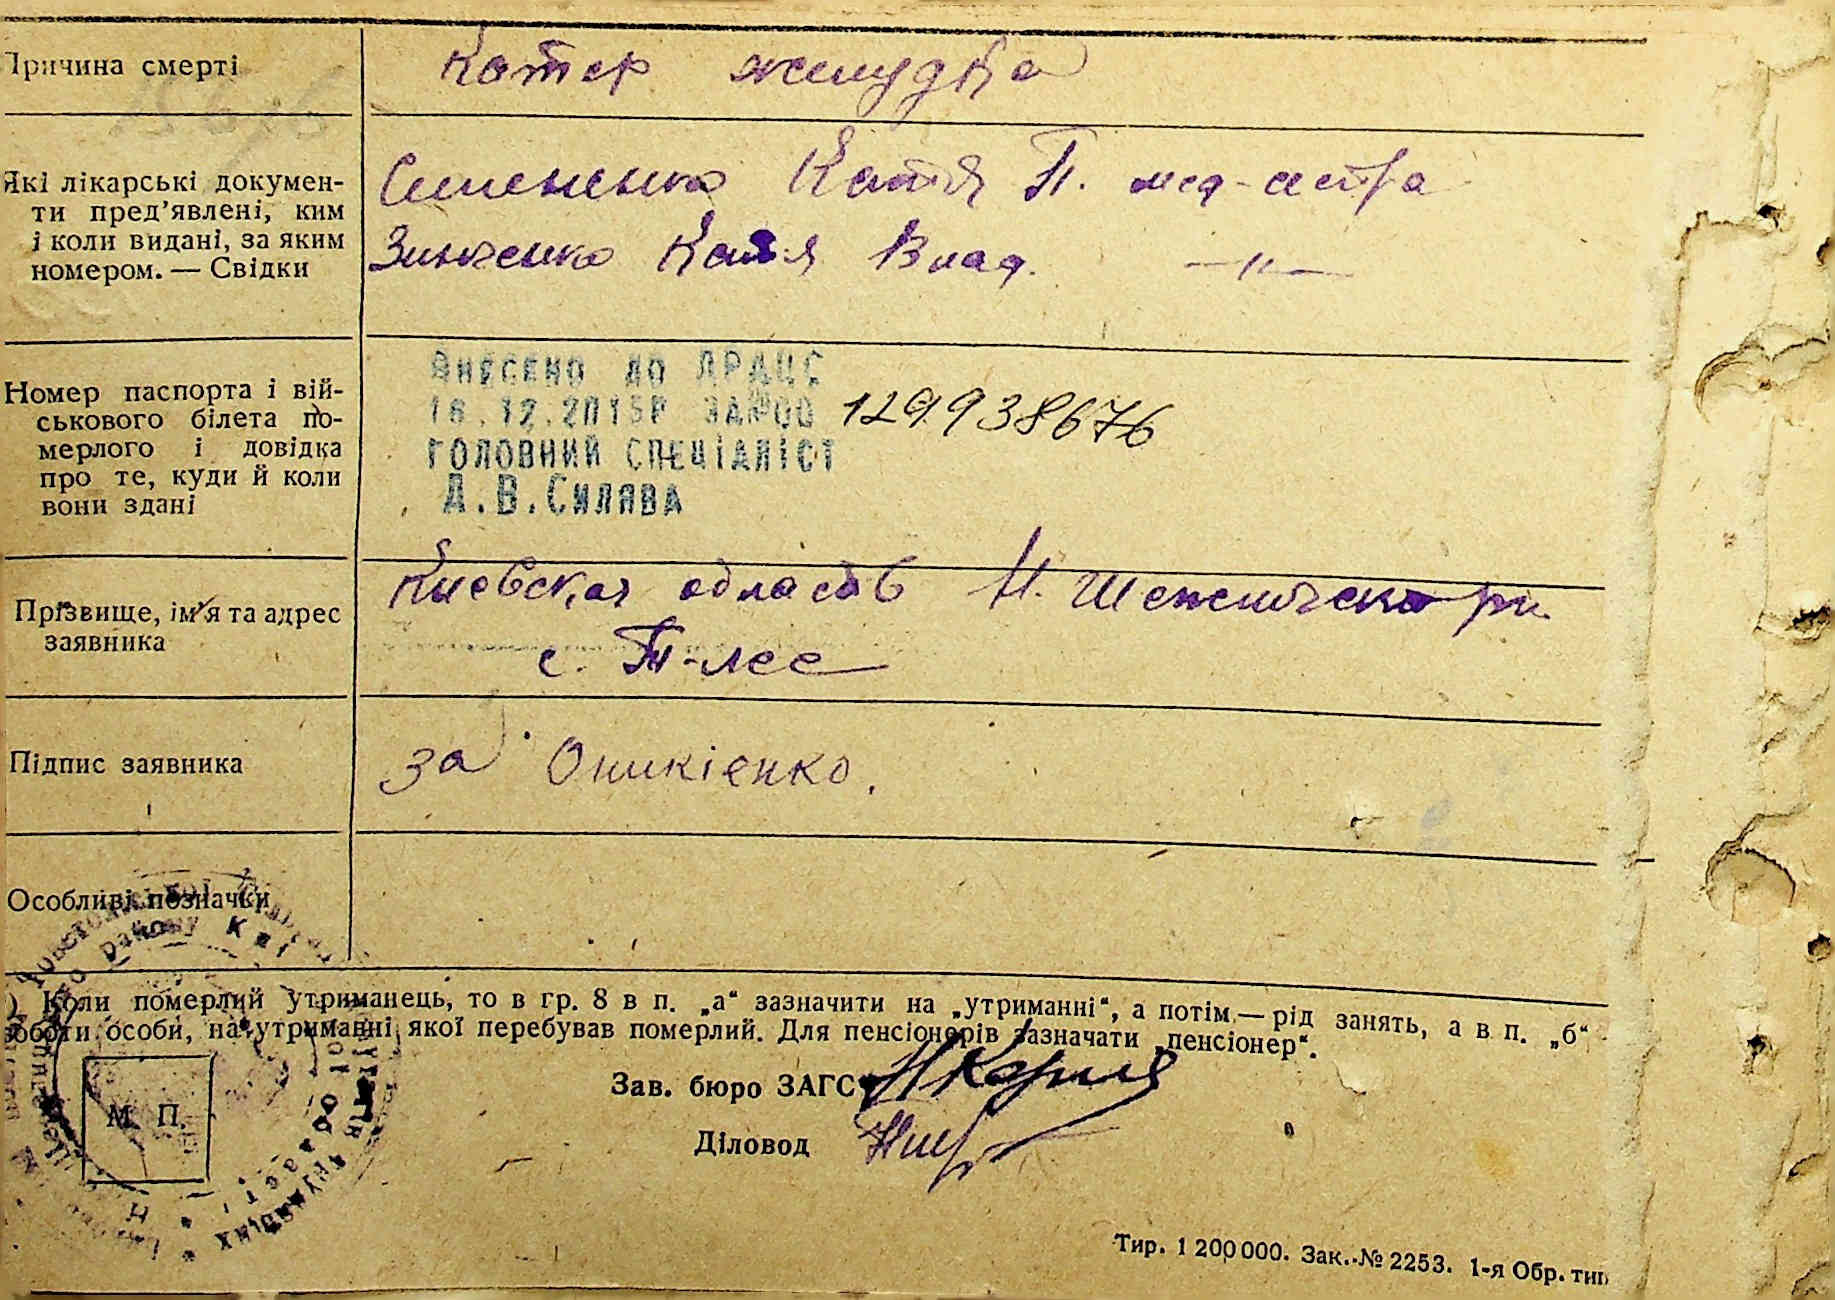 Причина смерті
Катар желудка
Які лікарські докумен-
ти пред'явлені, ким
і коли видані, за яким
номером. — Свідки
Семененко Катя П. мед-сестра
Зинченко Катя Влад. —"—
Номер паспорта і вій-
ськового білета по-
мерлого і довідка
про те, куди й коли
вони здані
ВНЕСЕНО ДО ДРАЦС
16.12.2015Р ЗА№00 129938676
ГОЛОВНИЙ СПЕЦІАЛІСТ
А.В.СИЛЯВА
Прізвище, ім'я та адрес
заявника
Киевская область Н. рн.
с.
Підпис заявника
за Оникієнко.
Особливі позначки
) Коли померлий утриманець, то в гр. 8 в п. „а“ зазначити на „утриманні“, а потім — рід занять, а в п. „б“
роботи особи, на утриманні якої перебував померлий. Для пенсіонерів зазначати „пенсіонер“.
Зав. бюро ЗАГС
Діловод
М. П.
Тир. 1 200 000. Зак. № 2253. 1-я Обр. тип